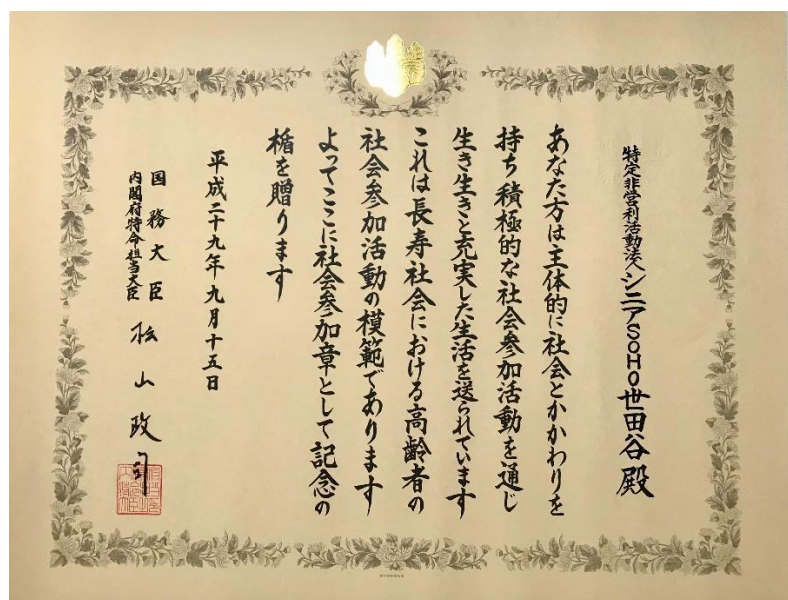 特定非営利活動法人シニアSOHO世田谷 殿
あなた方は主体的に社会とかかわりを
持ち積極的な社会参加活動を通じ
生き生きと充実した生活を送られています
これは長寿社会における高齢者の
社会参加活動の模範であります
よってここに社会参加章として記念の
楯を贈ります
平成二十九年九月十五日
国務大臣
内閣府特命担当大臣
松山政司